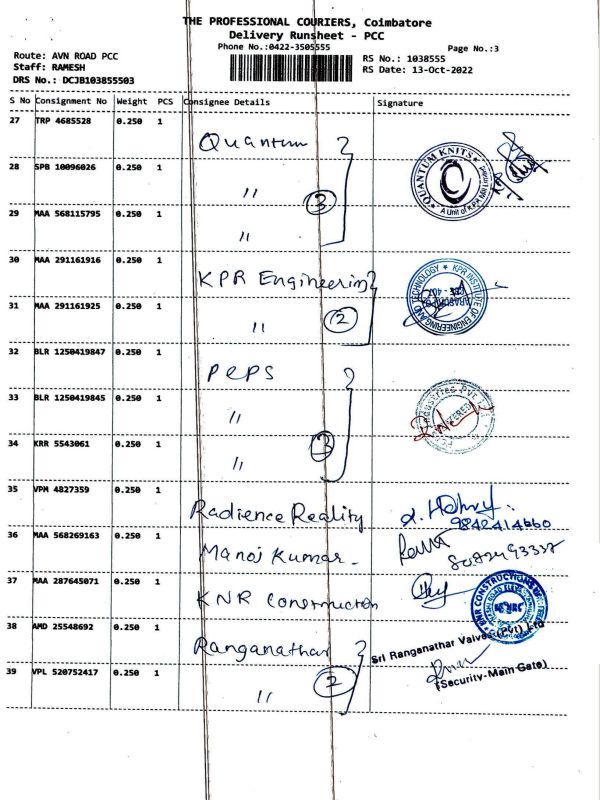 THE PROFESSIONAL COURIERS, Coimbatore
Delivery Runsheet - PCC
Phone No.:0422-3505555 Page No.:3
Route: AVN ROAD PCC RS No.: 1038555
Staff: RAMESH RS Date: 13-Oct-2022
DRS No.: DCJB103855503
S No Consignment No Weight PCS Consignee Details Signature
27 TRP 4685528 0.250 1 Quantum
28 SPB 10096026 0.250 1 " 3
29 MAA 568115795 0.250 1 "
QUANTUM KNITS
A Unit of KPR Mill Limited
30 MAA 291161916 0.250 1 KPR Engineering
31 MAA 291161925 0.250 1 " 2
KPR INSTITUTE OF ENGINEERING AND TECHNOLOGY
32 BLR 1250419847 0.250 1 Peps
33 BLR 1250419845 0.250 1 "
34 KRR 5543061 0.250 1 " 3
35 VPM 4827359 0.250 1 Radience Reality
9842414660
36 MAA 568269163 0.250 1 Manoj Kumar-
37 MAA 287645071 0.250 1 KNR Construction
38 AMD 25548692 0.250 1 Ranganathar
Sri Ranganathar Valves (Pvt) Ltd
39 VPL 520752417 0.250 1 " 2
(Security-Main Gate)